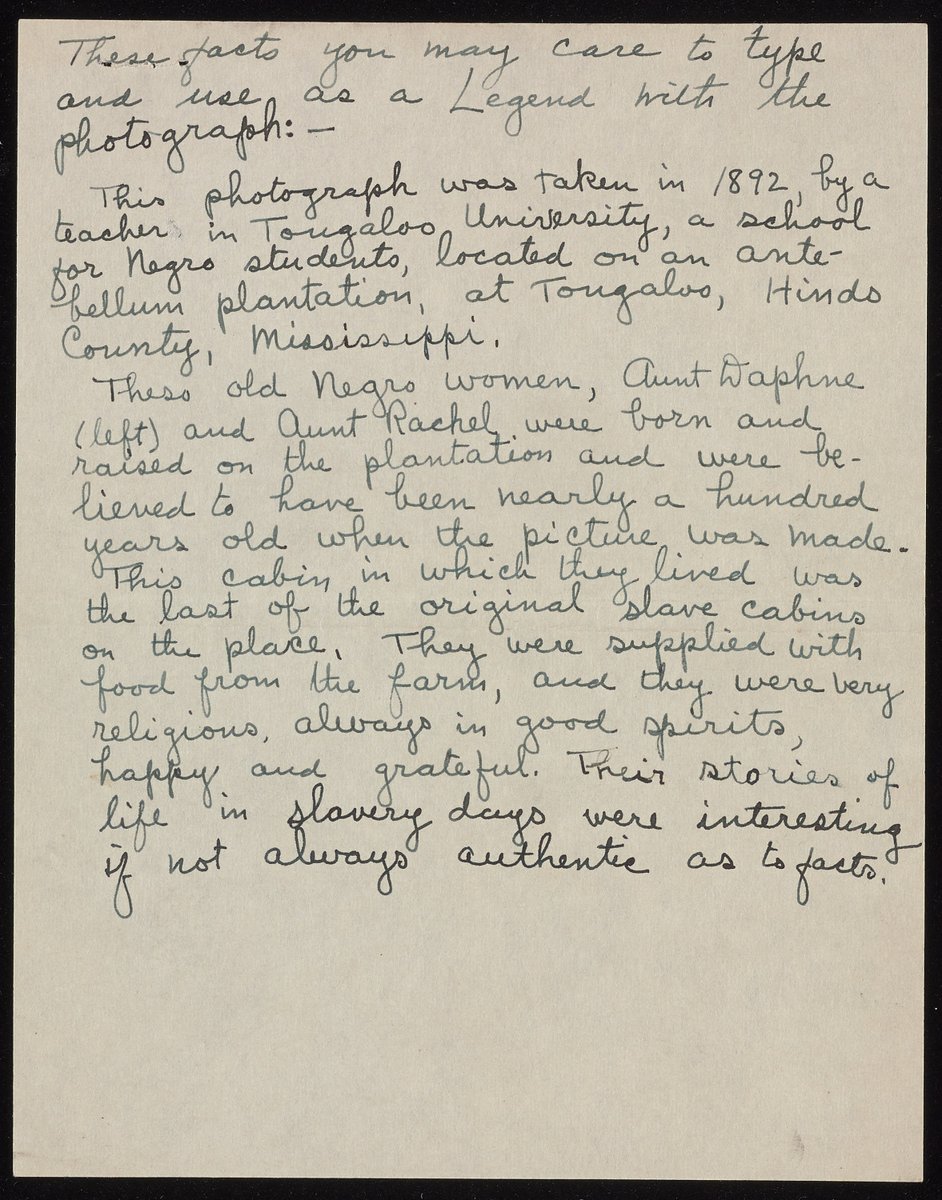 These facts you may care to type
and use as a Legend with the
photograph: —
This photograph was taken in 1892, by a
teacher in Tougaloo University, a school
for Negro students, located on an ante-
-bellum plantation, at Tougaloo, Hinds
County, Mississippi.
These old Negro women, Aunt Daphne
(left) and Aunt Rachel were born and
raised on the plantation and were be-
lieved to have been nearly a hundred
years old when the picture was made.
This cabin in which they lived was
the last of the original slave cabins
on the place. They were supplied with
food from the farm, and they were very
religious, always in good spirits,
happy and grateful. Their stories of
life in slavery days were interesting
if not always authentic as to facts.